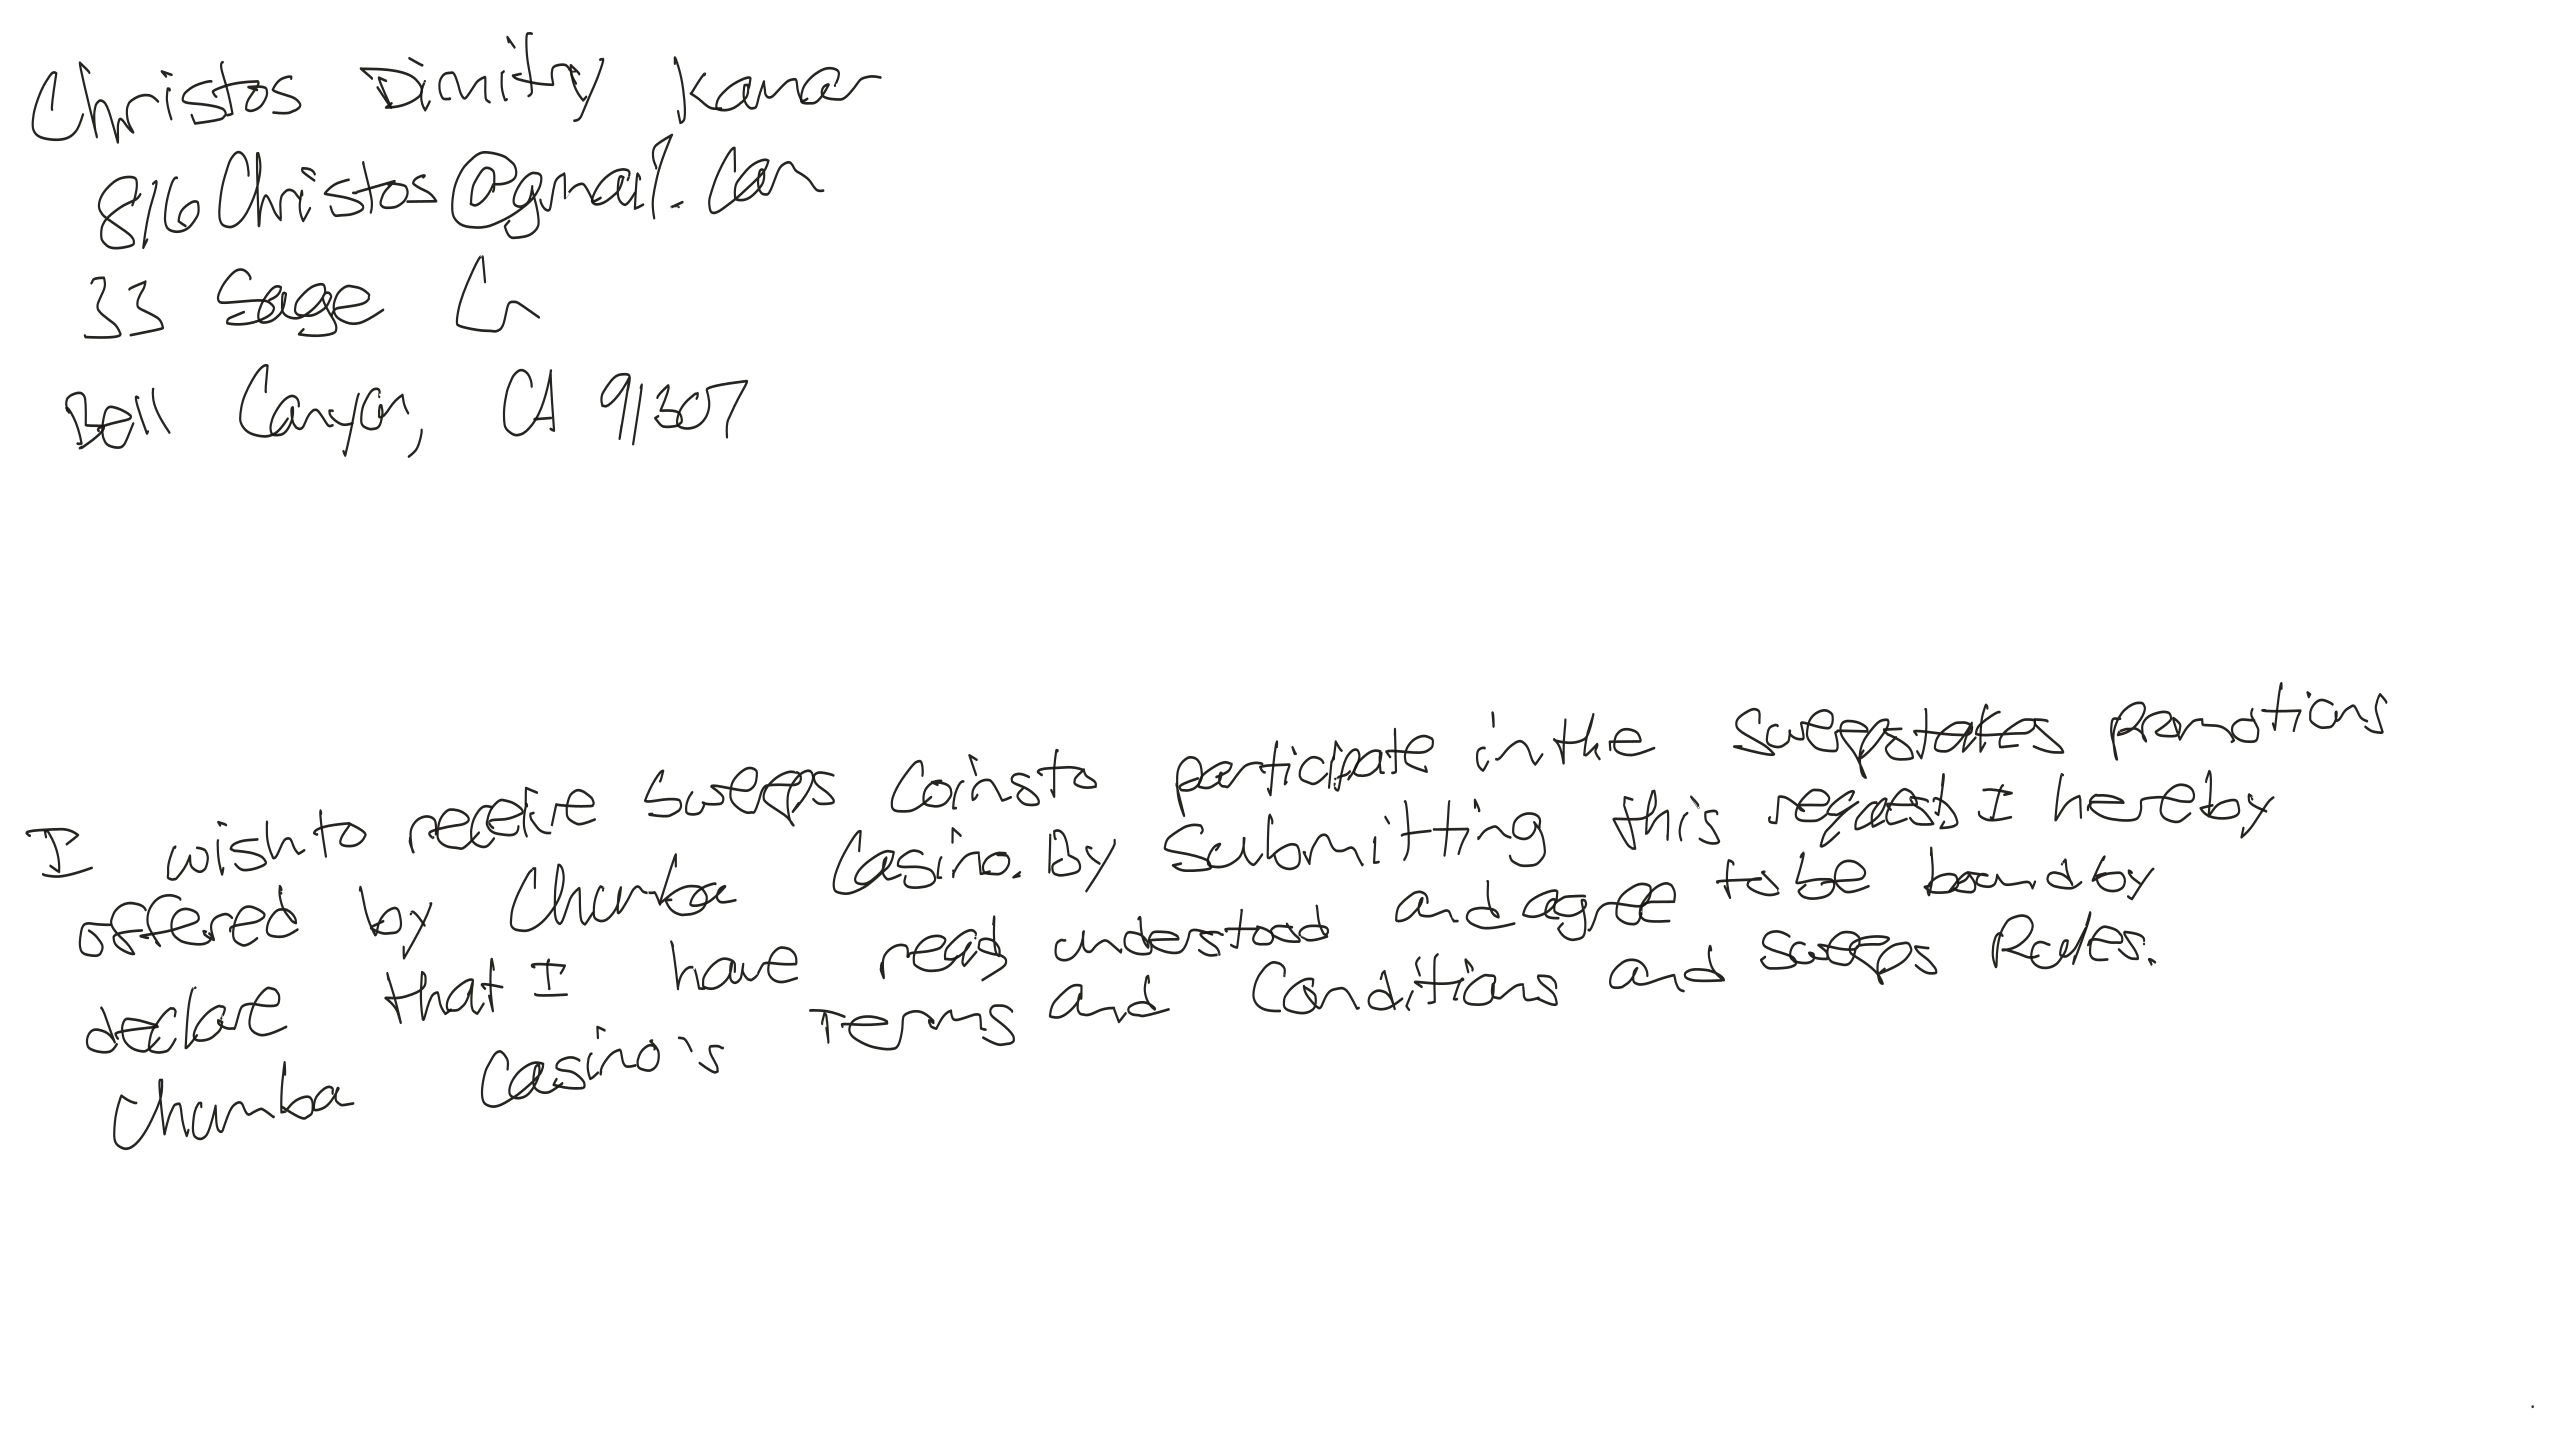 Christos Dimitry Kamar
816Christos@gmail.com
33 Sage Ln
Bell Canyon, CA 91307
I wish to receive Sweeps Coins to participate in the sweepstakes promotions
offered by Chumba Casino. By Submitting this request I hereby
declare that I have read understood and agree to be bound by
Chumba Casino's Terms and Conditions and Sweeps Rules.